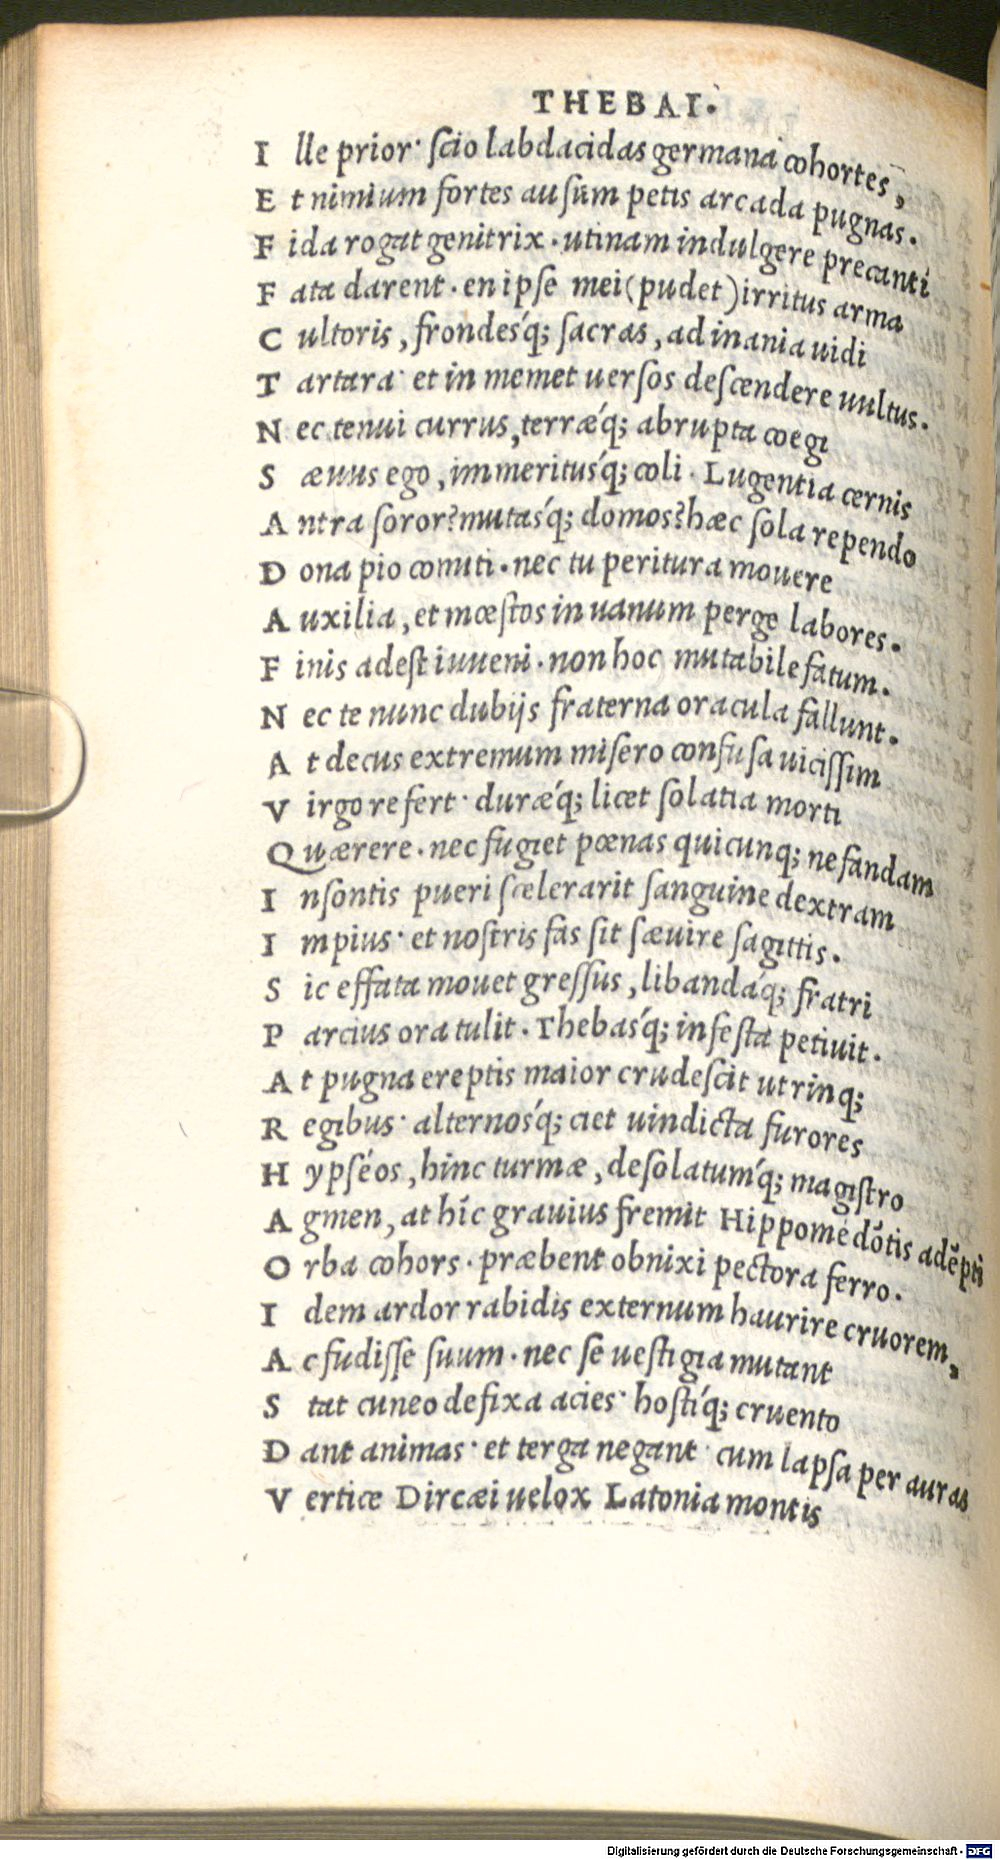 THEBAI.
I lle prior· ſcio labdacidas germana cohortes,
E t nimium fortes auſum petis arcada pugnas.
F ida rogat genitrix. utinam indulgere precanti
F ata darent. en ipſe mei (pudet) irritus arma
C ultoris, frondesq́; ſacras, ad inania uidi
T artara· et in memet uerſos deſcendere uultus.
N ec tenui currus, terræq́; abrupta coegi
S æuus ego, immeritusq́; coli. Lugentia cernis
A ntra ſoror? mutasq́; domos? hæc ſola rependo
D ona pio comiti. nec tu peritura mouere
A uxilia, et mœſtos in uanum perge labores.
F inis adeſt iuueni. non hoc mutabile fatum.
N ec te nunc dubijs fraterna oracula fallunt.
A t decus extremum miſero confuſa uiciſſim
V irgo refert· duræq́; licet ſolatia morti
Q uærere. nec fugiet pœnas quicunq; nefandam
I nſontis pueri ſcelerarit ſanguine dextram
I mpius· et noſtris fas ſit ſæuire ſagittis.
S ic effata mouet greſſus, libandaq́; fratri
P arcius ora tulit. Thebasq́; infeſta petiuit.
A t pugna ereptis maior crudeſcit utrinq;
R egibus· alternosq́; ciet uindicta furores
H ypſéos, hinc turmæ, deſolatumq́; magiſtro
A gmen, at hic grauius fremit Hippomédōtis adēpti
O rba cohors. præbent obnixi pectora ferro.
I dem ardor rabidis externum haurire cruorem,
A c fudiſſe ſuum. nec ſe ueſtigia mutant
S tat cuneo defixa acies· hoſtiq́; cruento
D ant animas· et terga negant· cum lapſa per auras
V ertice Dircæi uelox Latonia montis
Digitalisierung gefördert durch die Deutsche Forschungsgemeinschaft - DFG